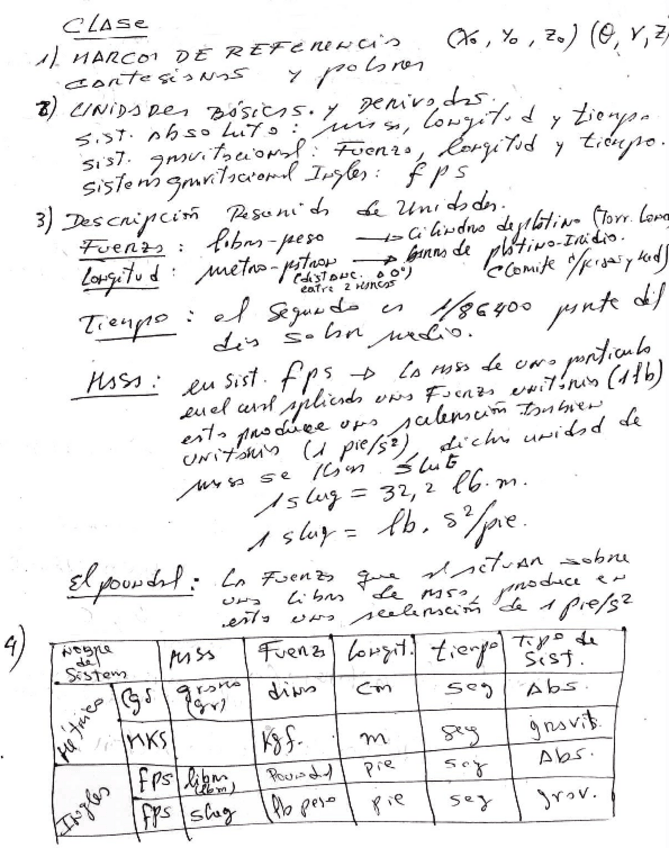 CLASE
1) MARCOS DE REFERENCIA (X₀, Y₀, Z₀) (θ, r, Z
cartesianas y polares
2) UNIDADES BÁSICAS. y Derivadas.
sist. Absoluto: masa, longitud y tiempo
sist. gravitacional: Fuerza, longitud y tiempo.
sistema gravitacional Ingles: fps
3) Descripción Resumida de Unidades.
Fuerza: libra-peso → Cilindro de platino (Torr. Lond
Longitud: metro-patron → barra de platino-Iridio.
(distanc. a 0°) (Comité
entre 2 marcas
Tiempo: el segundo es 1/86400 parte del
dia solar medio.
Masa: en sist. fps → La masa de una particula
en el cual aplicada una Fuerza unitaria (1 lb)
esta produce una aceleración tambien
unitaria (1 pie/s²), dicha unidad de
masa se llama slug
1 slug = 32,2 lb.m.
1 slug = lb. s²/pie.
El poundal: La Fuerza que al actuar sobre
una libra de masa, produce en
esta una aceleración de 1 pie/s²
4)
Nombre del Sistema | Masa | Fuerza | Longit. | tiempo | Tipo de Sist.
Métrico | Cgs | gramo (gr) | dina | cm | seg | Abs.
MKS | | Kgf. | m | seg | gravit.
Ingles | fps | libra (lbm) | Poundal | pie | seg | Abs.
fps | slug | lb peso | pie | seg | grav.